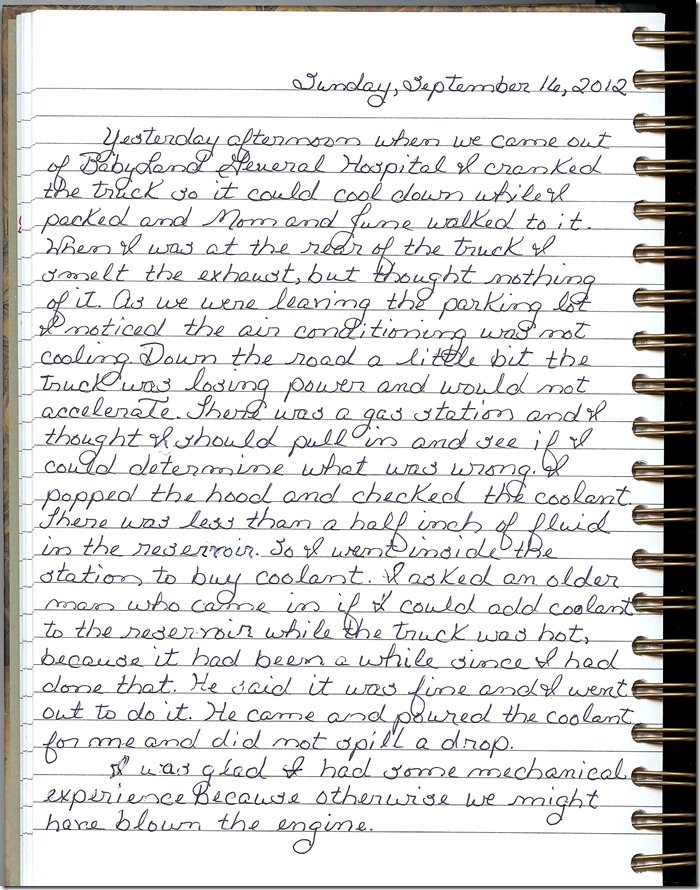 Sunday, September 16, 2012
Yesterday afternoon when we came out
of BabyLand General Hospital I cranked
the truck so it could cool down while I
packed and Mom and June walked to it.
When I was at the rear of the truck I
smelt the exhaust, but thought nothing
of it. As we were leaving the parking lot
I noticed the air conditioning was not
cooling. Down the road a little bit the
truck was losing power and would not
accelerate. There was a gas station and I
thought I should pull in and see if I
could determine what was wrong. I
popped the hood and checked the coolant.
There was less than a half inch of fluid
in the reservoir. So I went inside the
station to buy coolant. I asked an older
man who came in if I could add coolant
to the reservoir while the truck was hot,
because it had been a while since I had
done that. He said it was fine and I went
out to do it. He came and poured the coolant
for me and did not spill a drop.
I was glad I had some mechanical
experience because otherwise we might
have blown the engine.